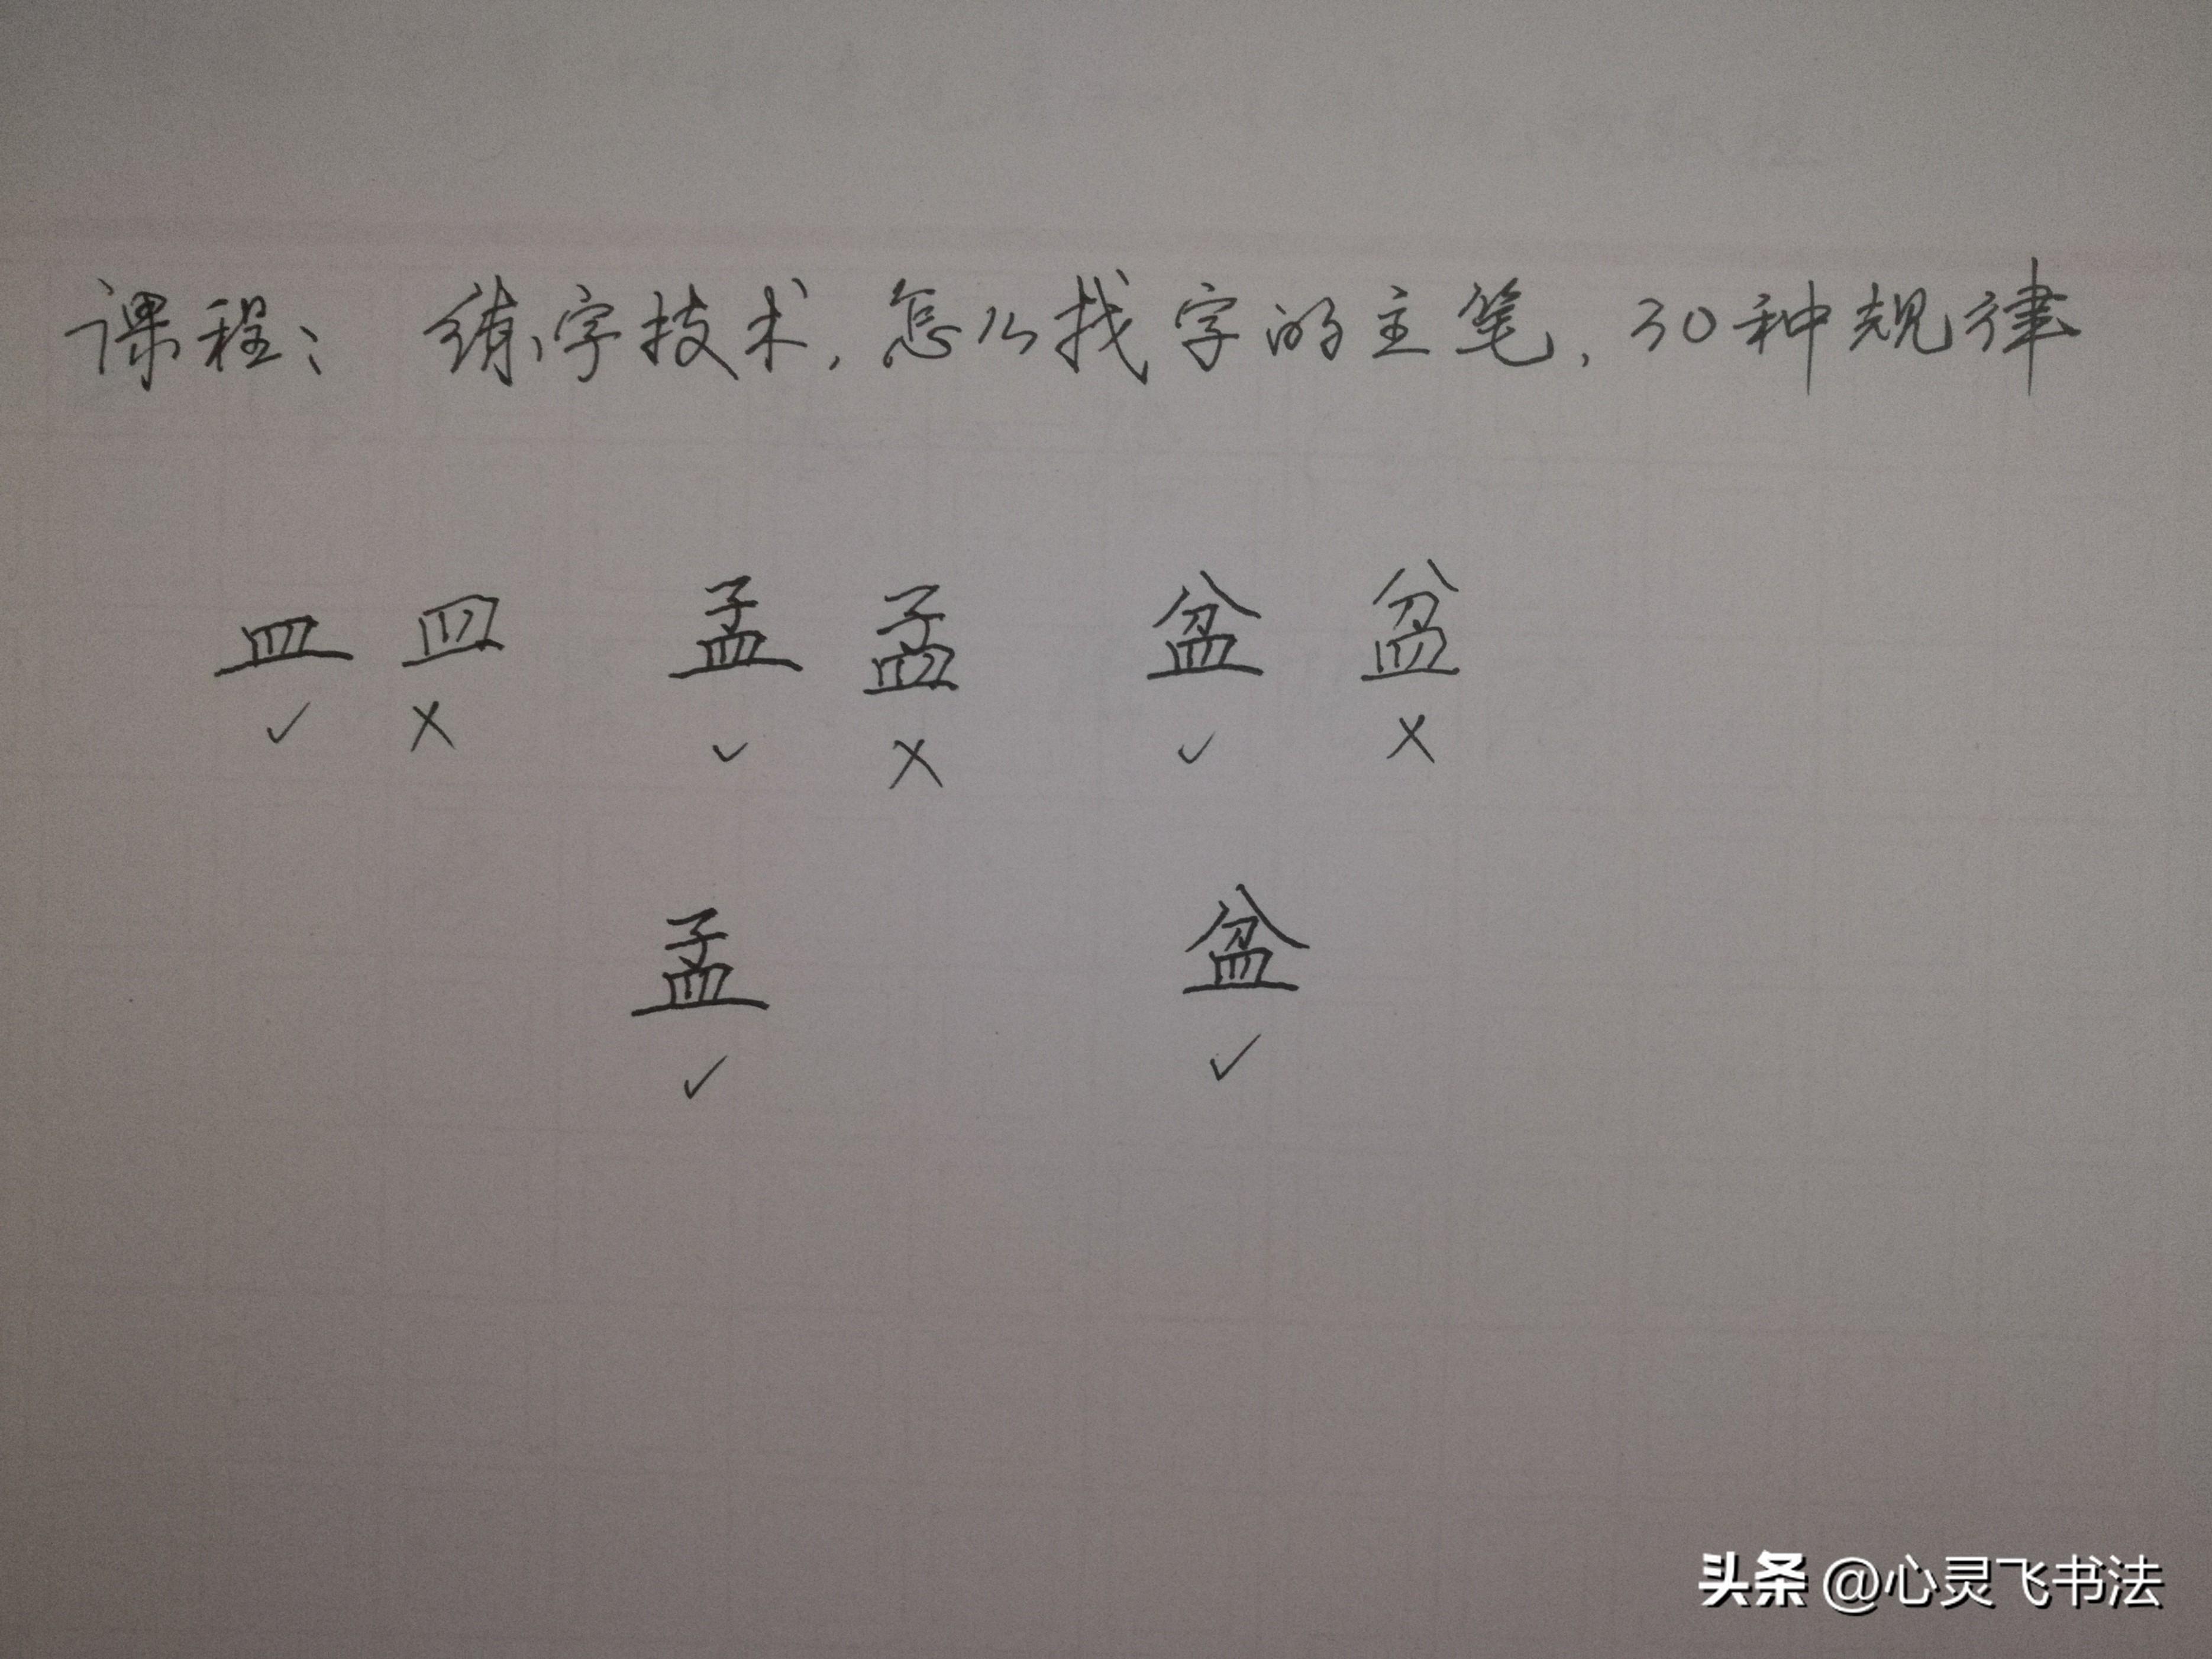 课程: 练字技术,怎么找字的主笔,30种规律
皿 皿 孟 孟 盆 盆
✓ X ✓ X ✓ X
孟 盆
✓ ✓
头条 @心灵飞书法